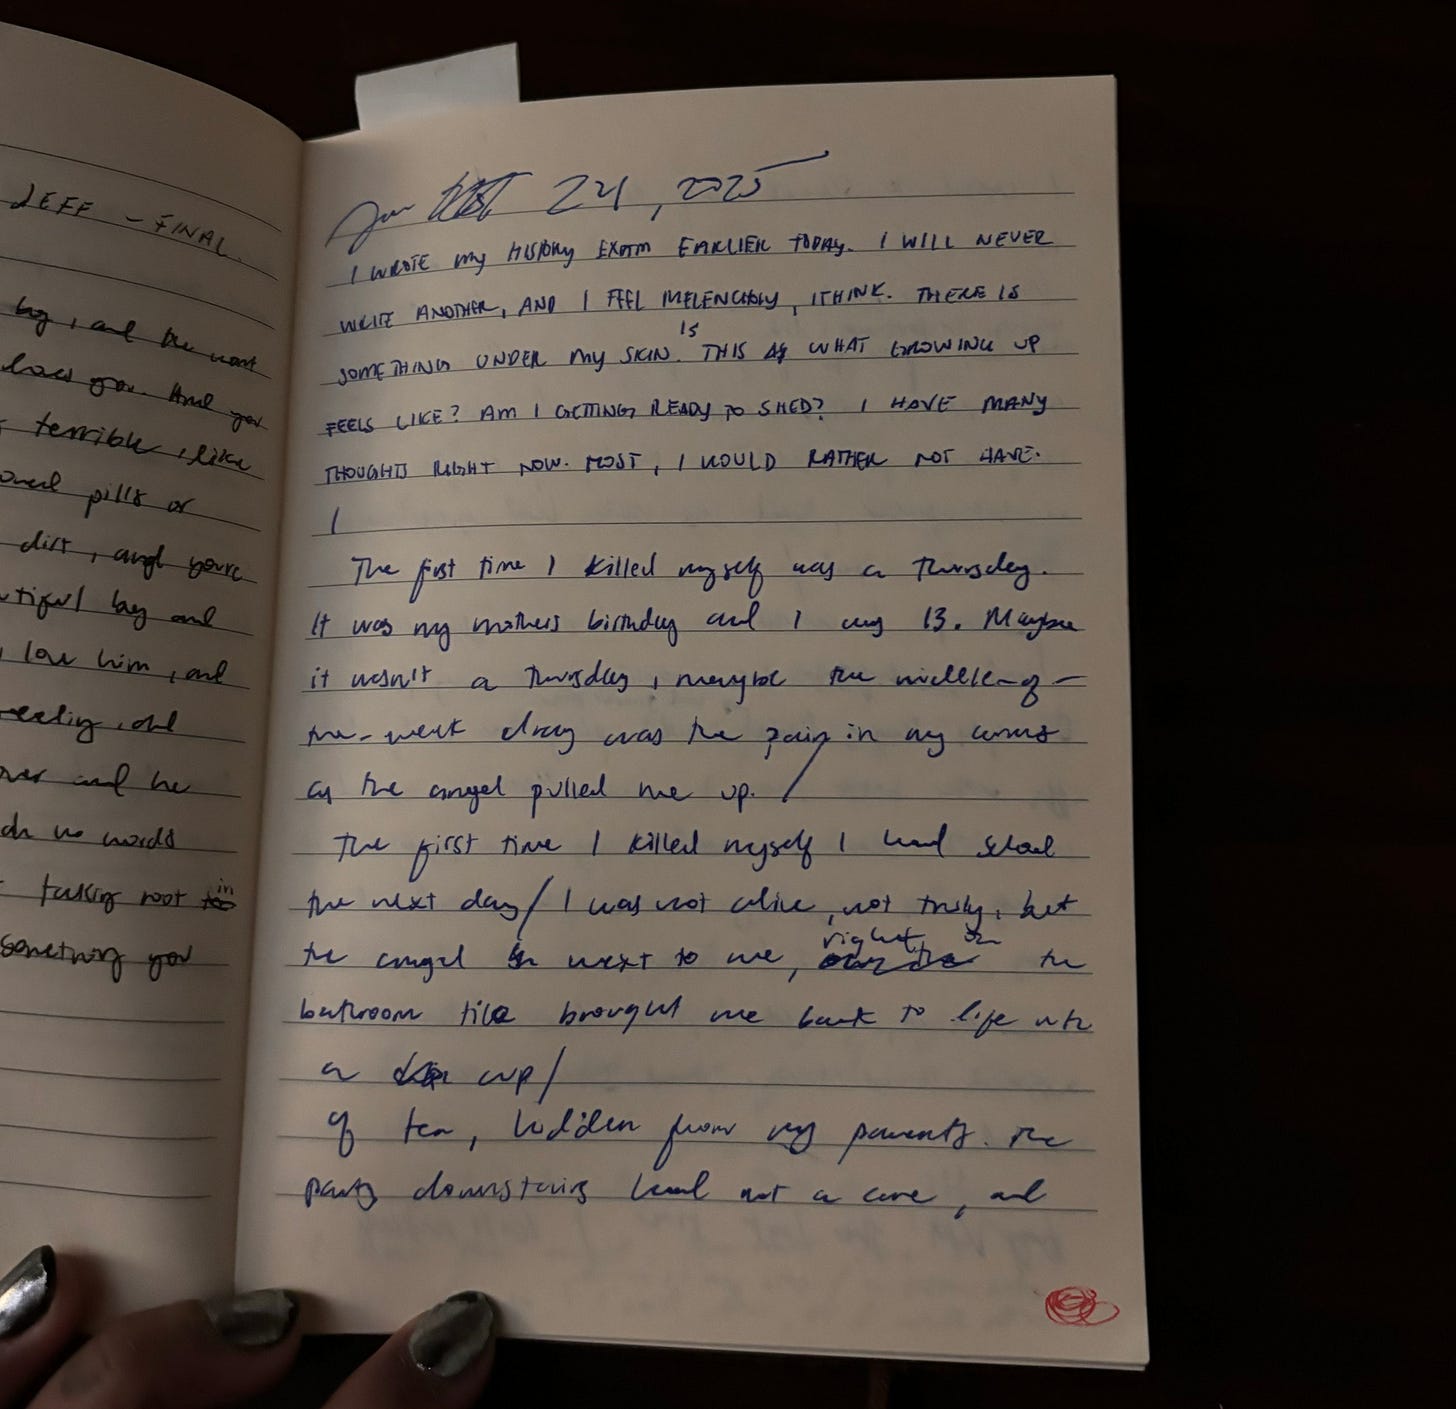 JEFF - FINAL.
boy, and the want
loves you. And you
terrible, like
pills or
dirt, and youre
boy and
love him, and
and
over and he
no words
taking root in
something you
Jun 24, 2025
I WROTE MY HISTORY EXAM EARLIER TODAY. I WILL NEVER
WRITE ANOTHER, AND I FEEL MELENCHOLY, I THINK. THERE IS
SOMETHING UNDER MY SKIN. IS THIS WHAT GROWING UP
FEELS LIKE? AM I GETTING READY TO SHED? I HAVE MANY
THOUGHTS RIGHT NOW. MOST, I WOULD RATHER NOT HAVE.
I
The first time I killed myself was a Thursday.
It was my mothers birthday and I was 13. Maybe
it wasn't a Thursday, maybe the middle-of-
the-week drag was the pain in my arms
as the angel pulled me up. /
The first time I killed myself I had school
the next day / I was not alive, not truly, but
the angel next to me, right on the
bathroom tile brought me back to life with
a cup /
of tea, hidden from my parents. The
party downstairs had not a care, and